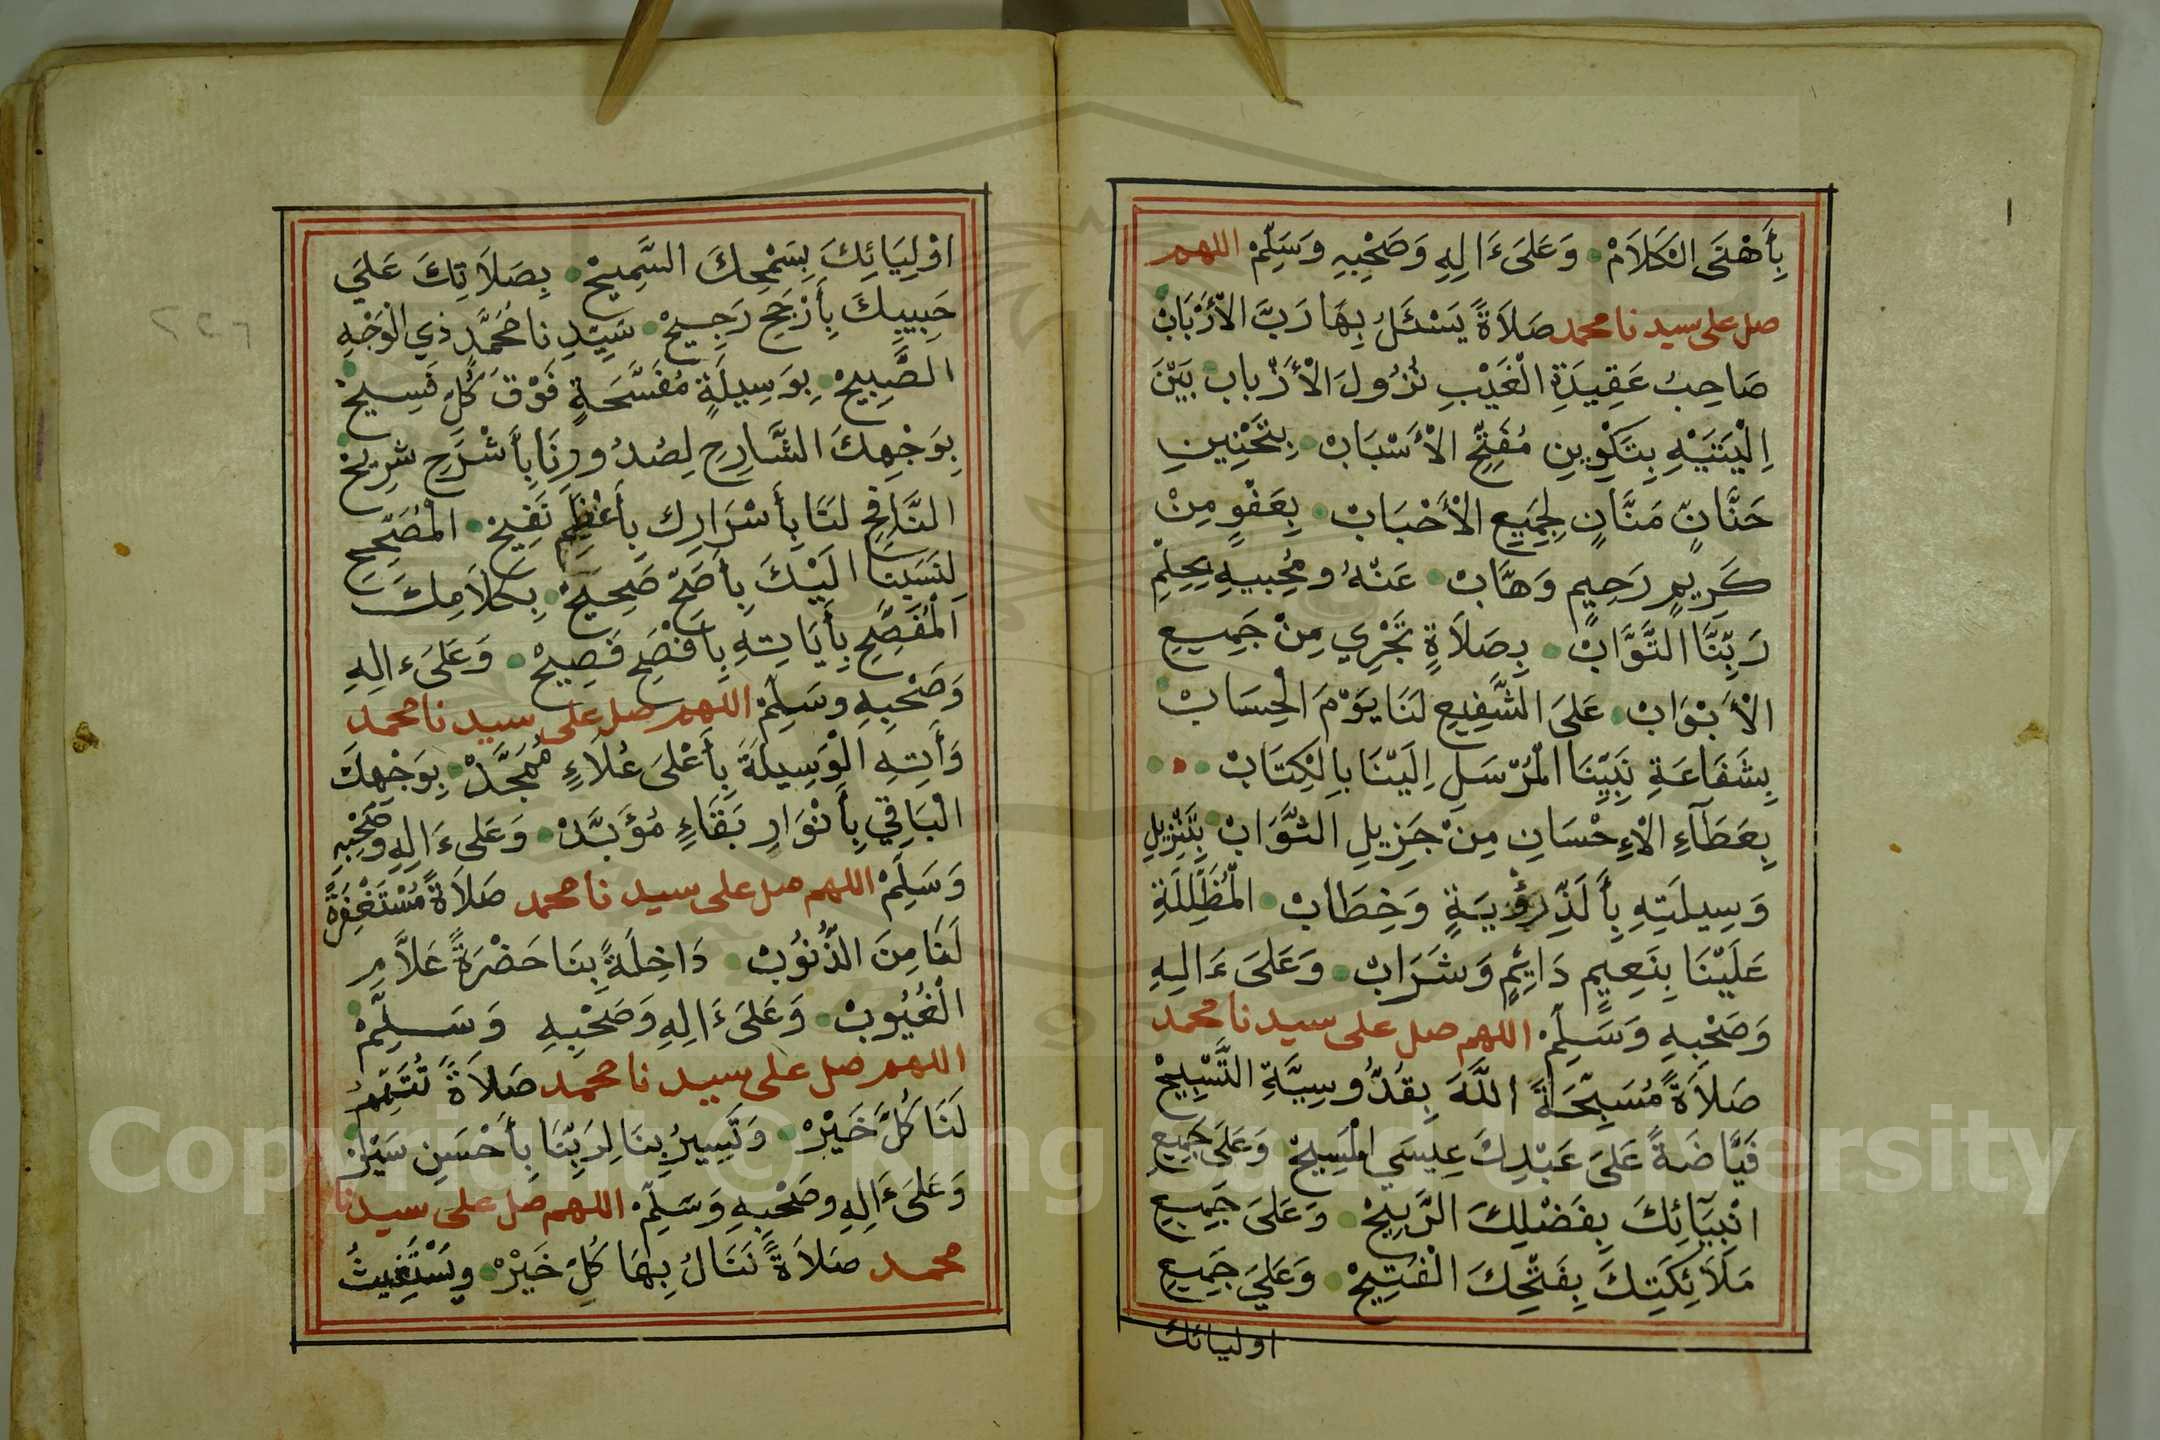 بِأَهْنَى الْكَلَامْ وَعَلَىَ ءَالِهِ وَصَحْبِهِ وَسَلِّمْ اللهم
صل على سيدنا محمد صَلَاةً يَسْئَلُ بِهَا رَبَّ الْأَرْبَابْ
صَاحِبُ عَقِيدَةِ الْغَيْبِ نُزُولَ الْأَرْبابْ بَيْنَ
بِتَكْوِينِ مُفَتِّحِ الْأَسْبَابْ بِتَحْنِينِ
حَنَّانٍ مَنَّانٍ لِجَمِيعِ الْأَحْبَابْ بِعَفْوٍ مِنْ
كَرِيمٍ رَحِيمٍ وَهَّابْ عَنْهُ ومُحِبيهِ بِحِلْمِ
رَبِّنَا التَّوَّابْ بِصَلَاةٍ تَجْرِي مِنْ جَمِيعِ
الْأَبْوَابْ عَلَىَ الشَّفِيعِ لَنَا يَوْمَ الْحِسَابْ
بِشَفَاعَةِ نَبِيِّنَا الْمُرْسَلِ اِلَيْنَا بِالْكِتَابْ
بِعَطَآءِ الْاِحْسَانِ مِنْ جَزِيلِ الثَّوَابْ بِتَنْزِيلِ
وَسِيلَتِهِ بِأَلَذِّ رُؤْيَةٍ وَخِطَابْ الْمُظَلِّلَةِ
عَلَيْنَا بِنَعِيمٍ دَايِمٍ وَشَرَابْ وَعَلَىَ ءَالِهِ
وَصَحْبِهِ وَسَلِّمْ اللهم صل على سيدنا محمد
صَلَاةً مُسَبِّحَةً اللَّهَ بِقُدُّوسِيَّةِ التَّسْبِيحْ
فَيَّاضَةً عَلَىَ عَبْدِكَ عِيسَي الْمَسِيحْ وَعَلَىَ جَمِيعِ
اَنْبِيَآئِكَ بِفَضْلِكَ الرَّبِيحْ وَعَلَىَ جَمِيعِ
مَلَآئِكَتِكَ بِفَتْحِكَ الْفَتِيحْ وَعَلَيَ جَمِيعِ
اوليائك
اوْلِيَائِكَ بِسَمْحِكَ السَّمِيحْ بِصَلَاتِكَ عَلَيَ
حَبِيبِكَ بِأَرْجَحِ رَجِيحْ سَيِّدِنا مُحَمَّدٍ ذِي الْوَجْهِ
الصَّبِيحْ بِوَسِيلَةٍ مُفَسَّحَةٍ فَوْقَ كُلِّ فَسِيحْ
بِوَجْهِكَ الشَّارِحِ لِصُدُورِنَا بِأَشْرَحِ شَرِيحْ
النَّافِحِ لَنَا بِأَسْرَارِكَ بِأَعْظَمِ نَفِيحْ الْمُصَحِّحِ
لِنَسَبِنَا اِلَيْكَ بِأَصَحِّ صَحِيحْ بِكَلَامِكَ
الْمُفَصِّحِ بِأَيَاتِهِ بِأَفْصَحِ فَصِيحْ وَعَلَىَ ءالِهِ
وَصَحْبِهِ وسَلِّمْ اللهم صل على سيدنا محمد
وَأَتِهِ الْوَسِيلَةَ بِأَعْلَىَ عُلَاءٍ مُمَجَّدْ بِوَجْهِكَ
الْبَاقِي بِأَنْوَارِ بَقَاءٍ مُؤَبَّدْ وَعَلىَ ءَالِهِ وَصَحْبِهِ
وَسَلِّمْ اللهم صل على سيدنا محمد صَلَاةً مُسْتَغْفِرَةً
لَنَا مِنَ الذُّنُوبْ دَاخِلَةً بِنَا حَضْرَةَ عَلَّامِ
الْغُيُوبْ وَعَلَىَ ءَالِهِ وَصَحْبِهِ وَسَلِّمْ
اللهم صل على سيدنا محمد صَلَاةً تُتَمِّمُ
لَنَا كُلَّ خَيْرْ وَتَسِيرُ بِنَا لِرَبِّنَا بِأَحْسَنِ سَيْرْ
وَعَلَىَ ءَالِهِ وصَحْبِهِ وَسَلِّمْ اللهم صل على سيدنا
محمد صَلَاةً نَنَالُ بِهَا كُلَّ خَيْرْ ويَسْتَغِيثُ
Copyright © King Saud University